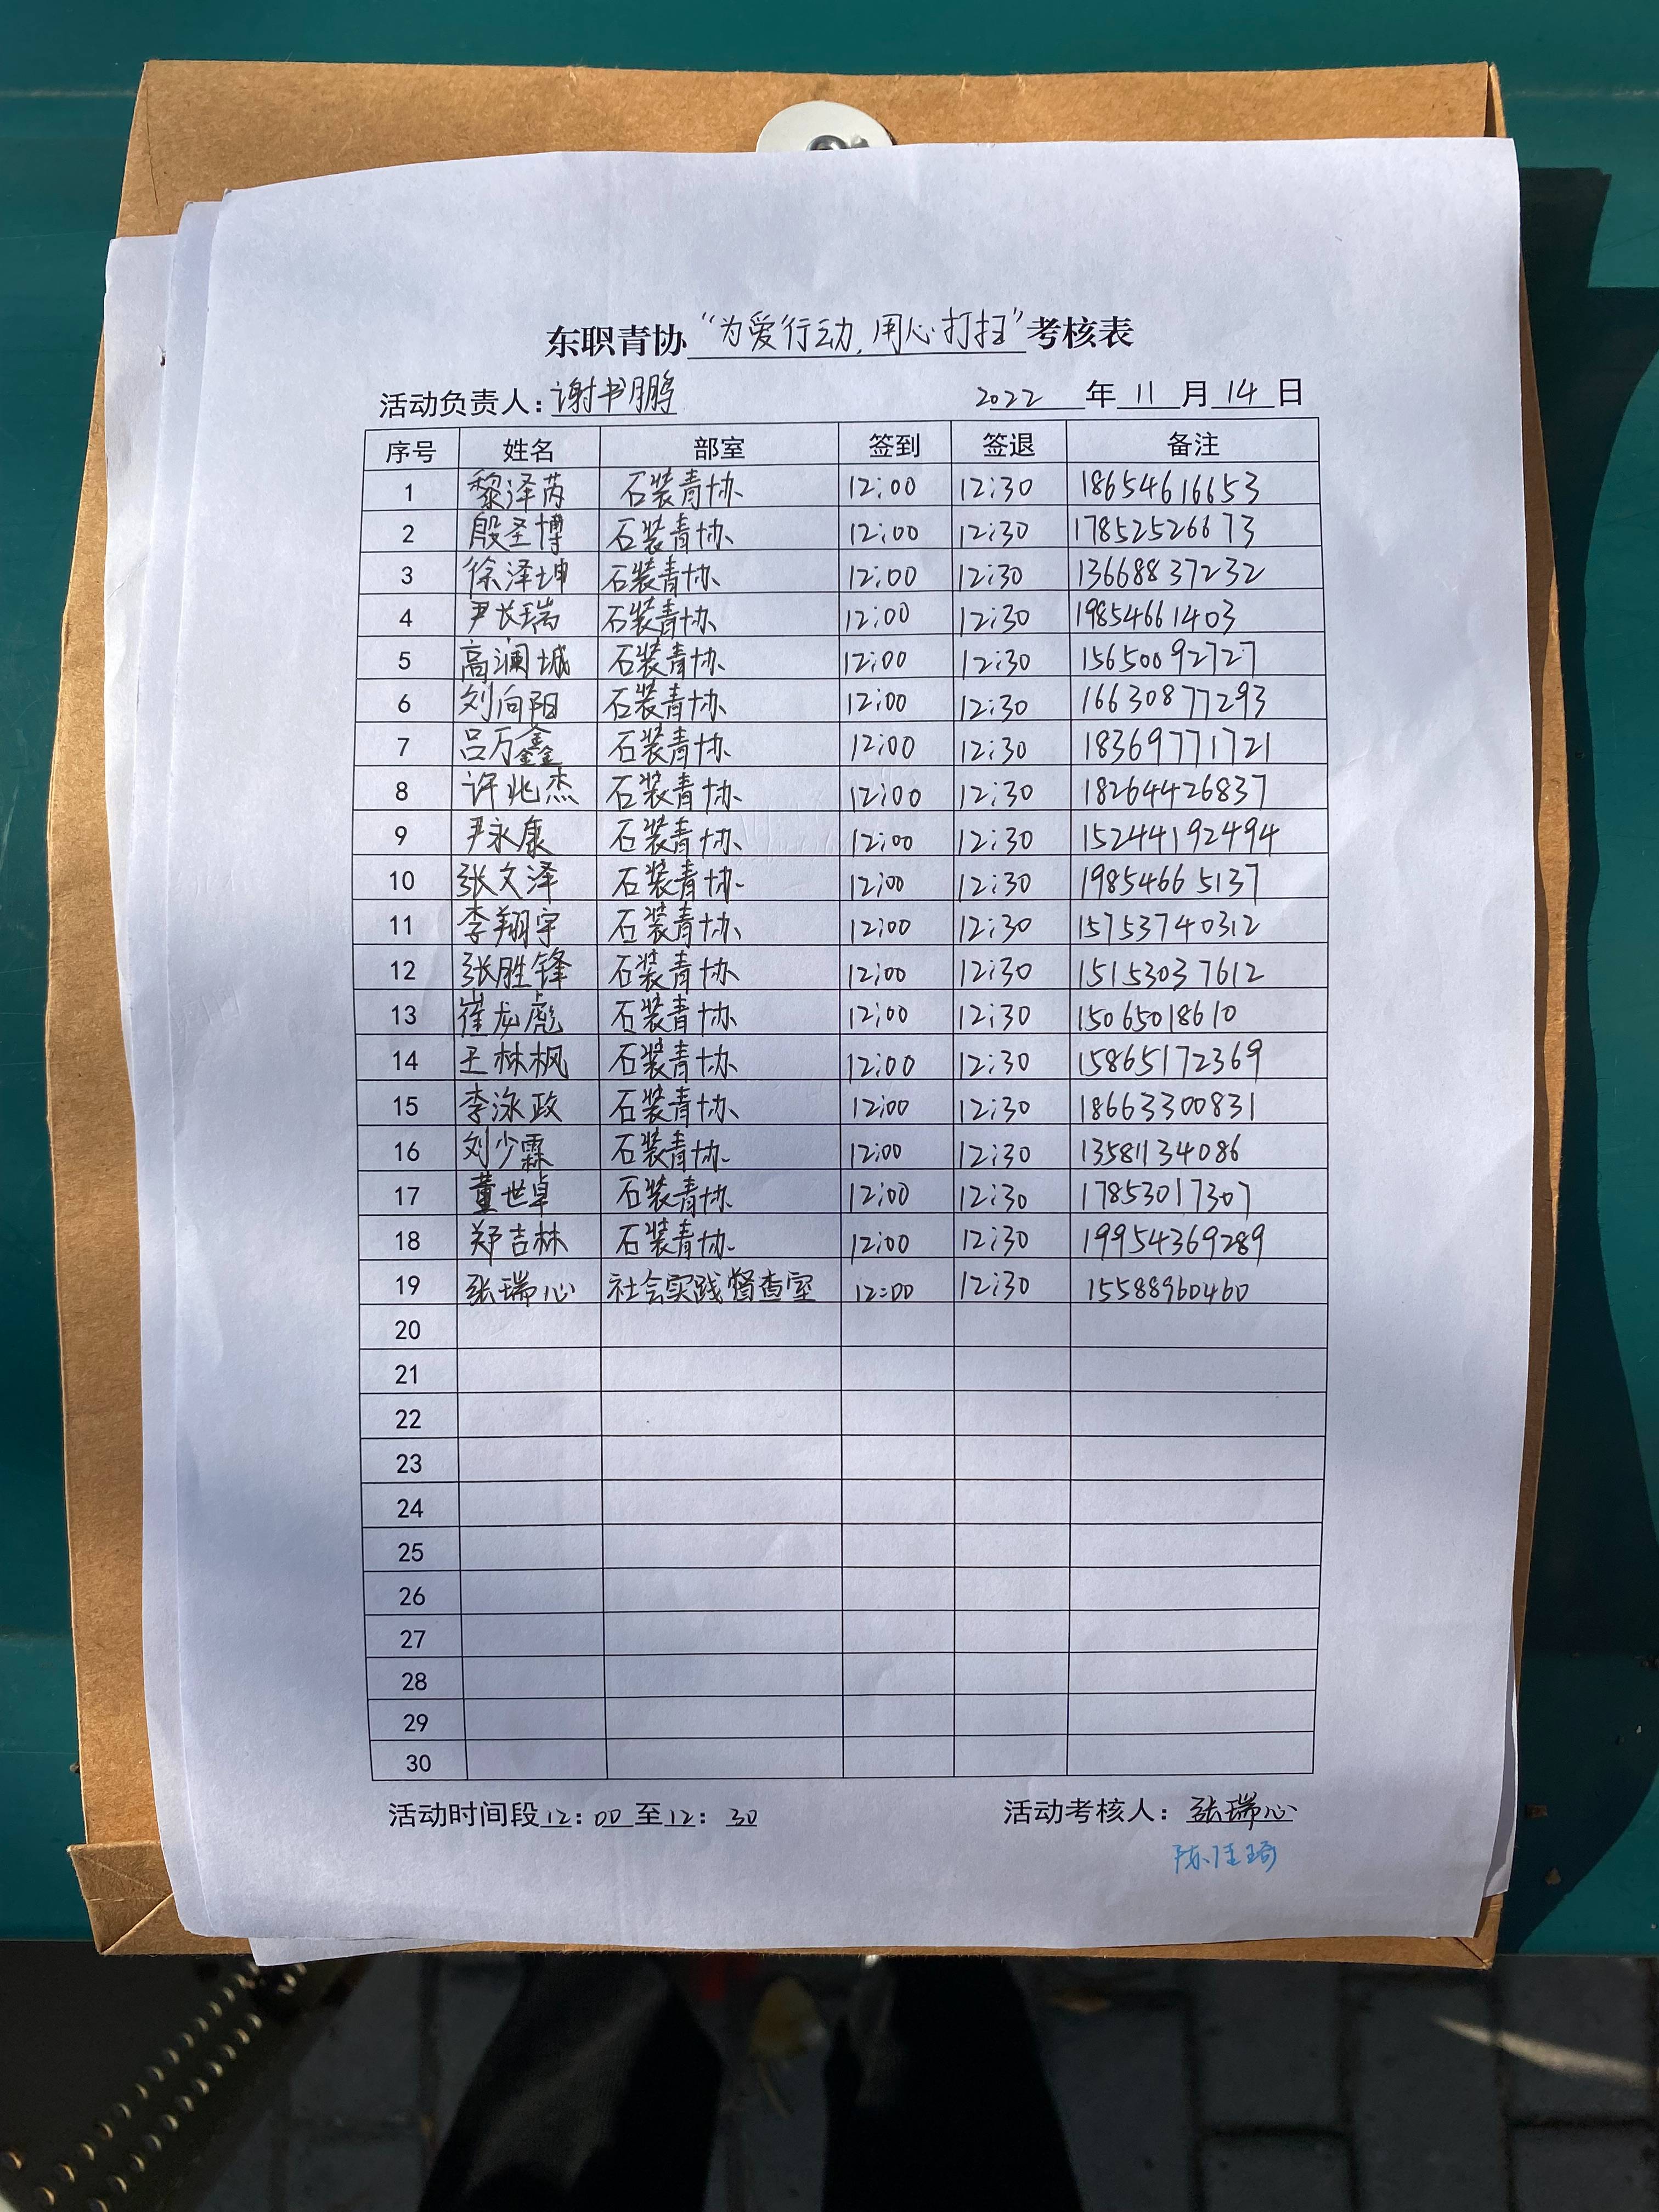 东职青协“为爱行动,用心打扫”考核表
活动负责人:谢书鹏 2022年11月14日
序号 姓名 部室 签到 签退 备注
1 黎泽芮 石装青协 12:00 12:30 18654616653
2 殷圣博 石装青协 12:00 12:30 17852526673
3 徐泽坤 石装青协 12:00 12:30 13668837232
4 尹长瑞 石装青协 12:00 12:30 19854661403
5 高澜城 石装青协 12:00 12:30 15650092727
6 刘向阳 石装青协 12:00 12:30 16630877293
7 吕万鑫 石装青协 12:00 12:30 18369771721
8 许兆杰 石装青协 12:00 12:30 18264426837
9 尹永康 石装青协 12:00 12:30 15244192494
10 张文泽 石装青协 12:00 12:30 19854665137
11 李翔宇 石装青协 12:00 12:30 15753740312
12 张胜锋 石装青协 12:00 12:30 15153037612
13 崔龙彪 石装青协 12:00 12:30 15065018610
14 王林枫 石装青协 12:00 12:30 15865172369
15 李泳政 石装青协 12:00 12:30 18663300831
16 刘少霖 石装青协 12:00 12:30 13581134086
17 董世卓 石装青协 12:00 12:30 17853017307
18 郑吉林 石装青协 12:00 12:30 19954369289
19 张瑞心 社会实践督查室 12:00 12:30 15588960460
20
21
22
23
24
25
26
27
28
29
30
活动时间段12:00至12:30 活动考核人:张瑞心
陈佳琦